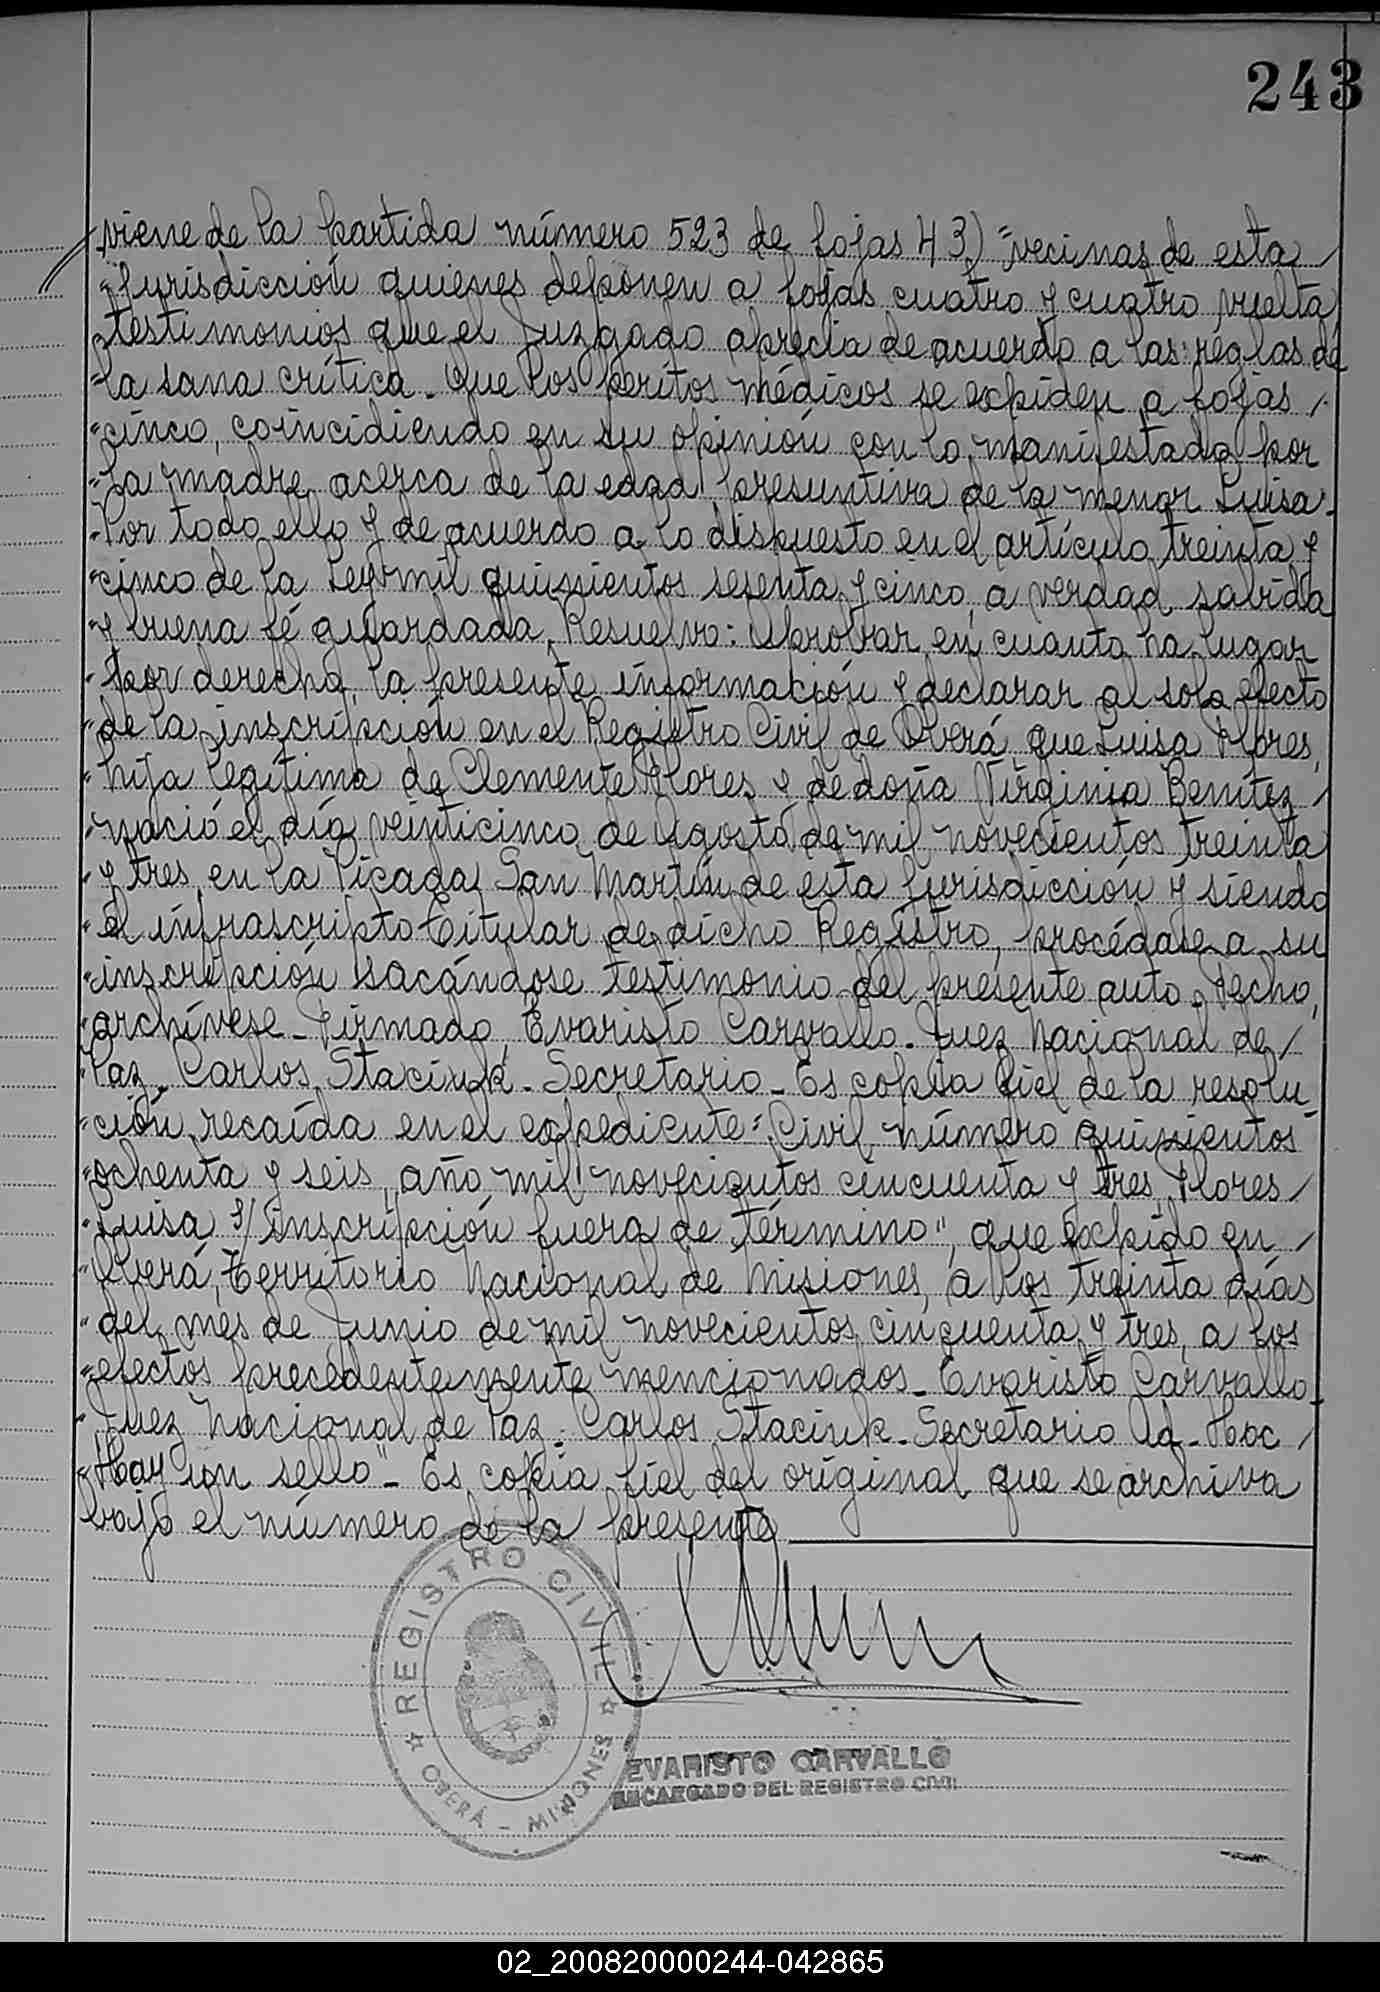 243
viene de la partida número 523 de fojas 43) "vecinas de esta
"jurisdicción quienes deponen a fojas cuatro y cuatro vuelta,
"testimonios que el Juzgado aprecia de acuerdo a las reglas de
"la sana crítica.- Que los peritos médicos se expiden a fojas /-
"cinco, coincidiendo en su opinión con lo manifestado por
"la madre acerca de la edad presuntiva de la menor Luisa.-
"Por todo ello y de acuerdo a lo dispuesto en el artículo treinta y
"cinco de la Ley mil quinientos sesenta y cinco, a verdad sabida
"y buena fé guardada, Resuelvo: Aprobar en cuanto ha lugar
"por derecho, la presente información y declarar al solo efecto
"de la inscripción en el Registro Civil de Oberá que Luisa Flores,
"hija legítima de Clemente Flores y de doña Virginia Benítez /
"nació el día veinticinco de Agosto de mil novecientos treinta
"y tres, en la Picada San Martín de esta jurisdicción y siendo
"el infrascripto titular de dicho Registro, procédase a su
"inscripción sacándose testimonio del presente auto.- Fecho,
"archívese.- Firmado, Evaristo Carvallo.- Juez Nacional de /
"Paz.- Carlos Staciuk.- Secretario.- Es copia fiel de la resolu-
"ción recaída en el expediente: "Civil número quinientos
"ochenta y seis, año mil novecientos cincuenta y tres, Flores /
"Luisa s/ inscripción fuera de término", que expido en /
"Oberá, Territorio Nacional de Misiones, a los treinta días
"del mes de Junio de mil novecientos cincuenta y tres, a los
"efectos precedentemente mencionados.- Evaristo Carvallo.-
"Juez Nacional de Paz.- Carlos Staciuk.- Secretario Ad-Hoc /
"Hay un sello".- Es copia fiel del original que se archiva
bajo el número de la presente
REGISTRO CIVIL
OBERÁ - MISIONES
EVARISTO CARVALLO
ENCARGADO DEL REGISTRO CIVIL
02_200820000244-042865